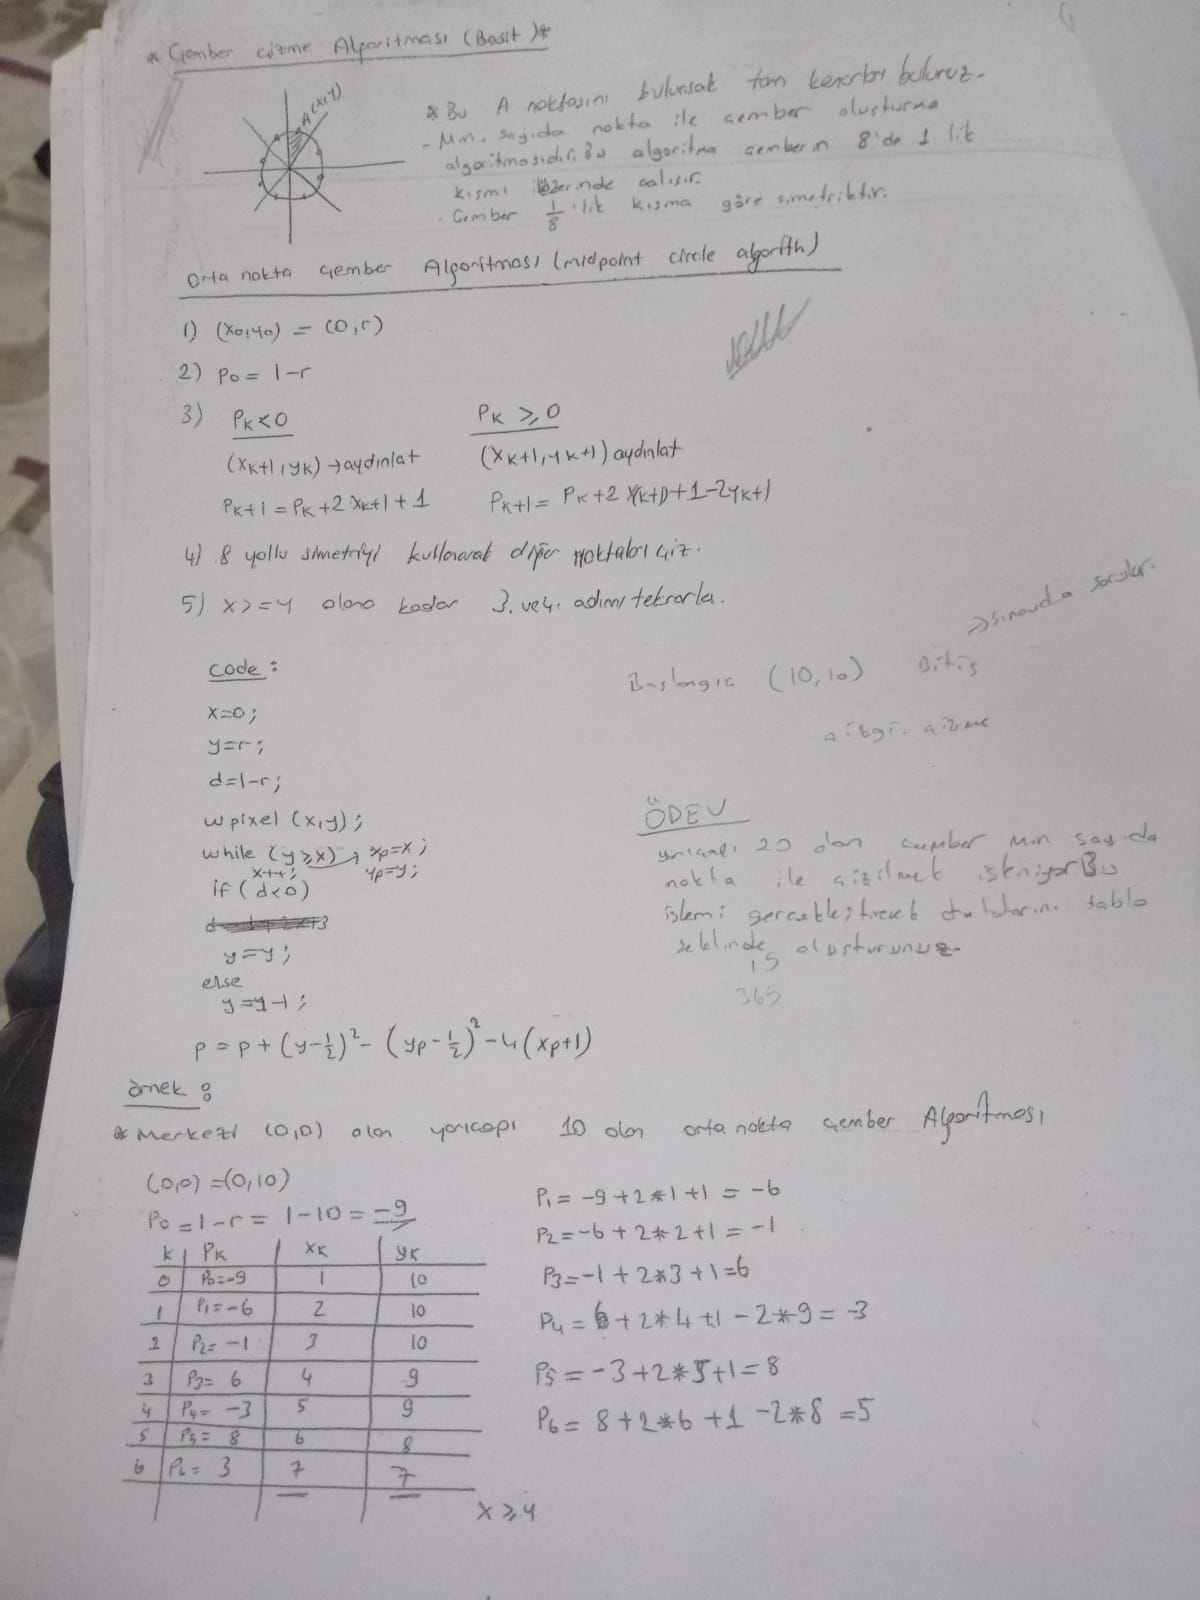 * Çember çizme Algoritması (Basit)*
A(x,y)
* Bu A noktasını bulursak tüm kenarları buluruz.
- Min. sayıda nokta ile çember oluşturma
algoritmasıdır. Bu algoritma çemberin 8'de 1 lik
kısmı üzerinde çalışır.
- Çember 1/8 'lik kısma göre simetriktir.
Orta nokta Çember Algoritması (midpoint circle algorith)
1) (x0,y0) = (0,r)
2) P0 = 1-r
3) PK<0
(XK+1,yK) → aydınlat
PK+1 = PK+2 XK+1 + 1
PK ≥ 0
(XK+1,yK+1) aydınlat
PK+1 = PK+2 X(K+1)+1-2yK+1
4) 8 yollu simetriyi kullanarak diğer noktaları çiz.
5) x>=y olana kadar 3. ve 4. adımı tekrarla.
→ sınavda sorular.
Başlangıç (10,10) Bitiş
çizgi. çizme
code :
x=0;
y=r;
d=1-r;
wpixel (x,y);
while (y≥x) → xp=x;
x++; yp=y;
if (d<0)
y=y;
else
y=y-1;
p = p + (y-1/2)² - (yp-1/2)² - 4(xp+1)
ÖDEV
yarıçapı 20 olan çember min sayıda
nokta ile çizilmek isteniyor Bu
işlemi gerçekleştirecek tablo
şeklinde oluşturunuz.
15
365
örnek :
* Merkezi (0,0) olan yarıçapı 10 olan orta nokta çember Algoritması
(0,0) = (0,10)
P0 = 1-r = 1-10 = -9
K PK XK yK
0 P0=-9 1 10
1 P1=-6 2 10
2 P2=-1 3 10
3 P3= 6 4 9
4 P4= -3 5 9
5 P5= 8 6 8
6 P6= 3 7 7
x ≥ y
P1 = -9+2*1+1 = -6
P2 = -6+2*2+1 = -1
P3 = -1+2*3+1=6
P4 = 6+2*4+1-2*9 = -3
P5 = -3+2*5+1=8
P6 = 8+2*6+1-2*8 =5